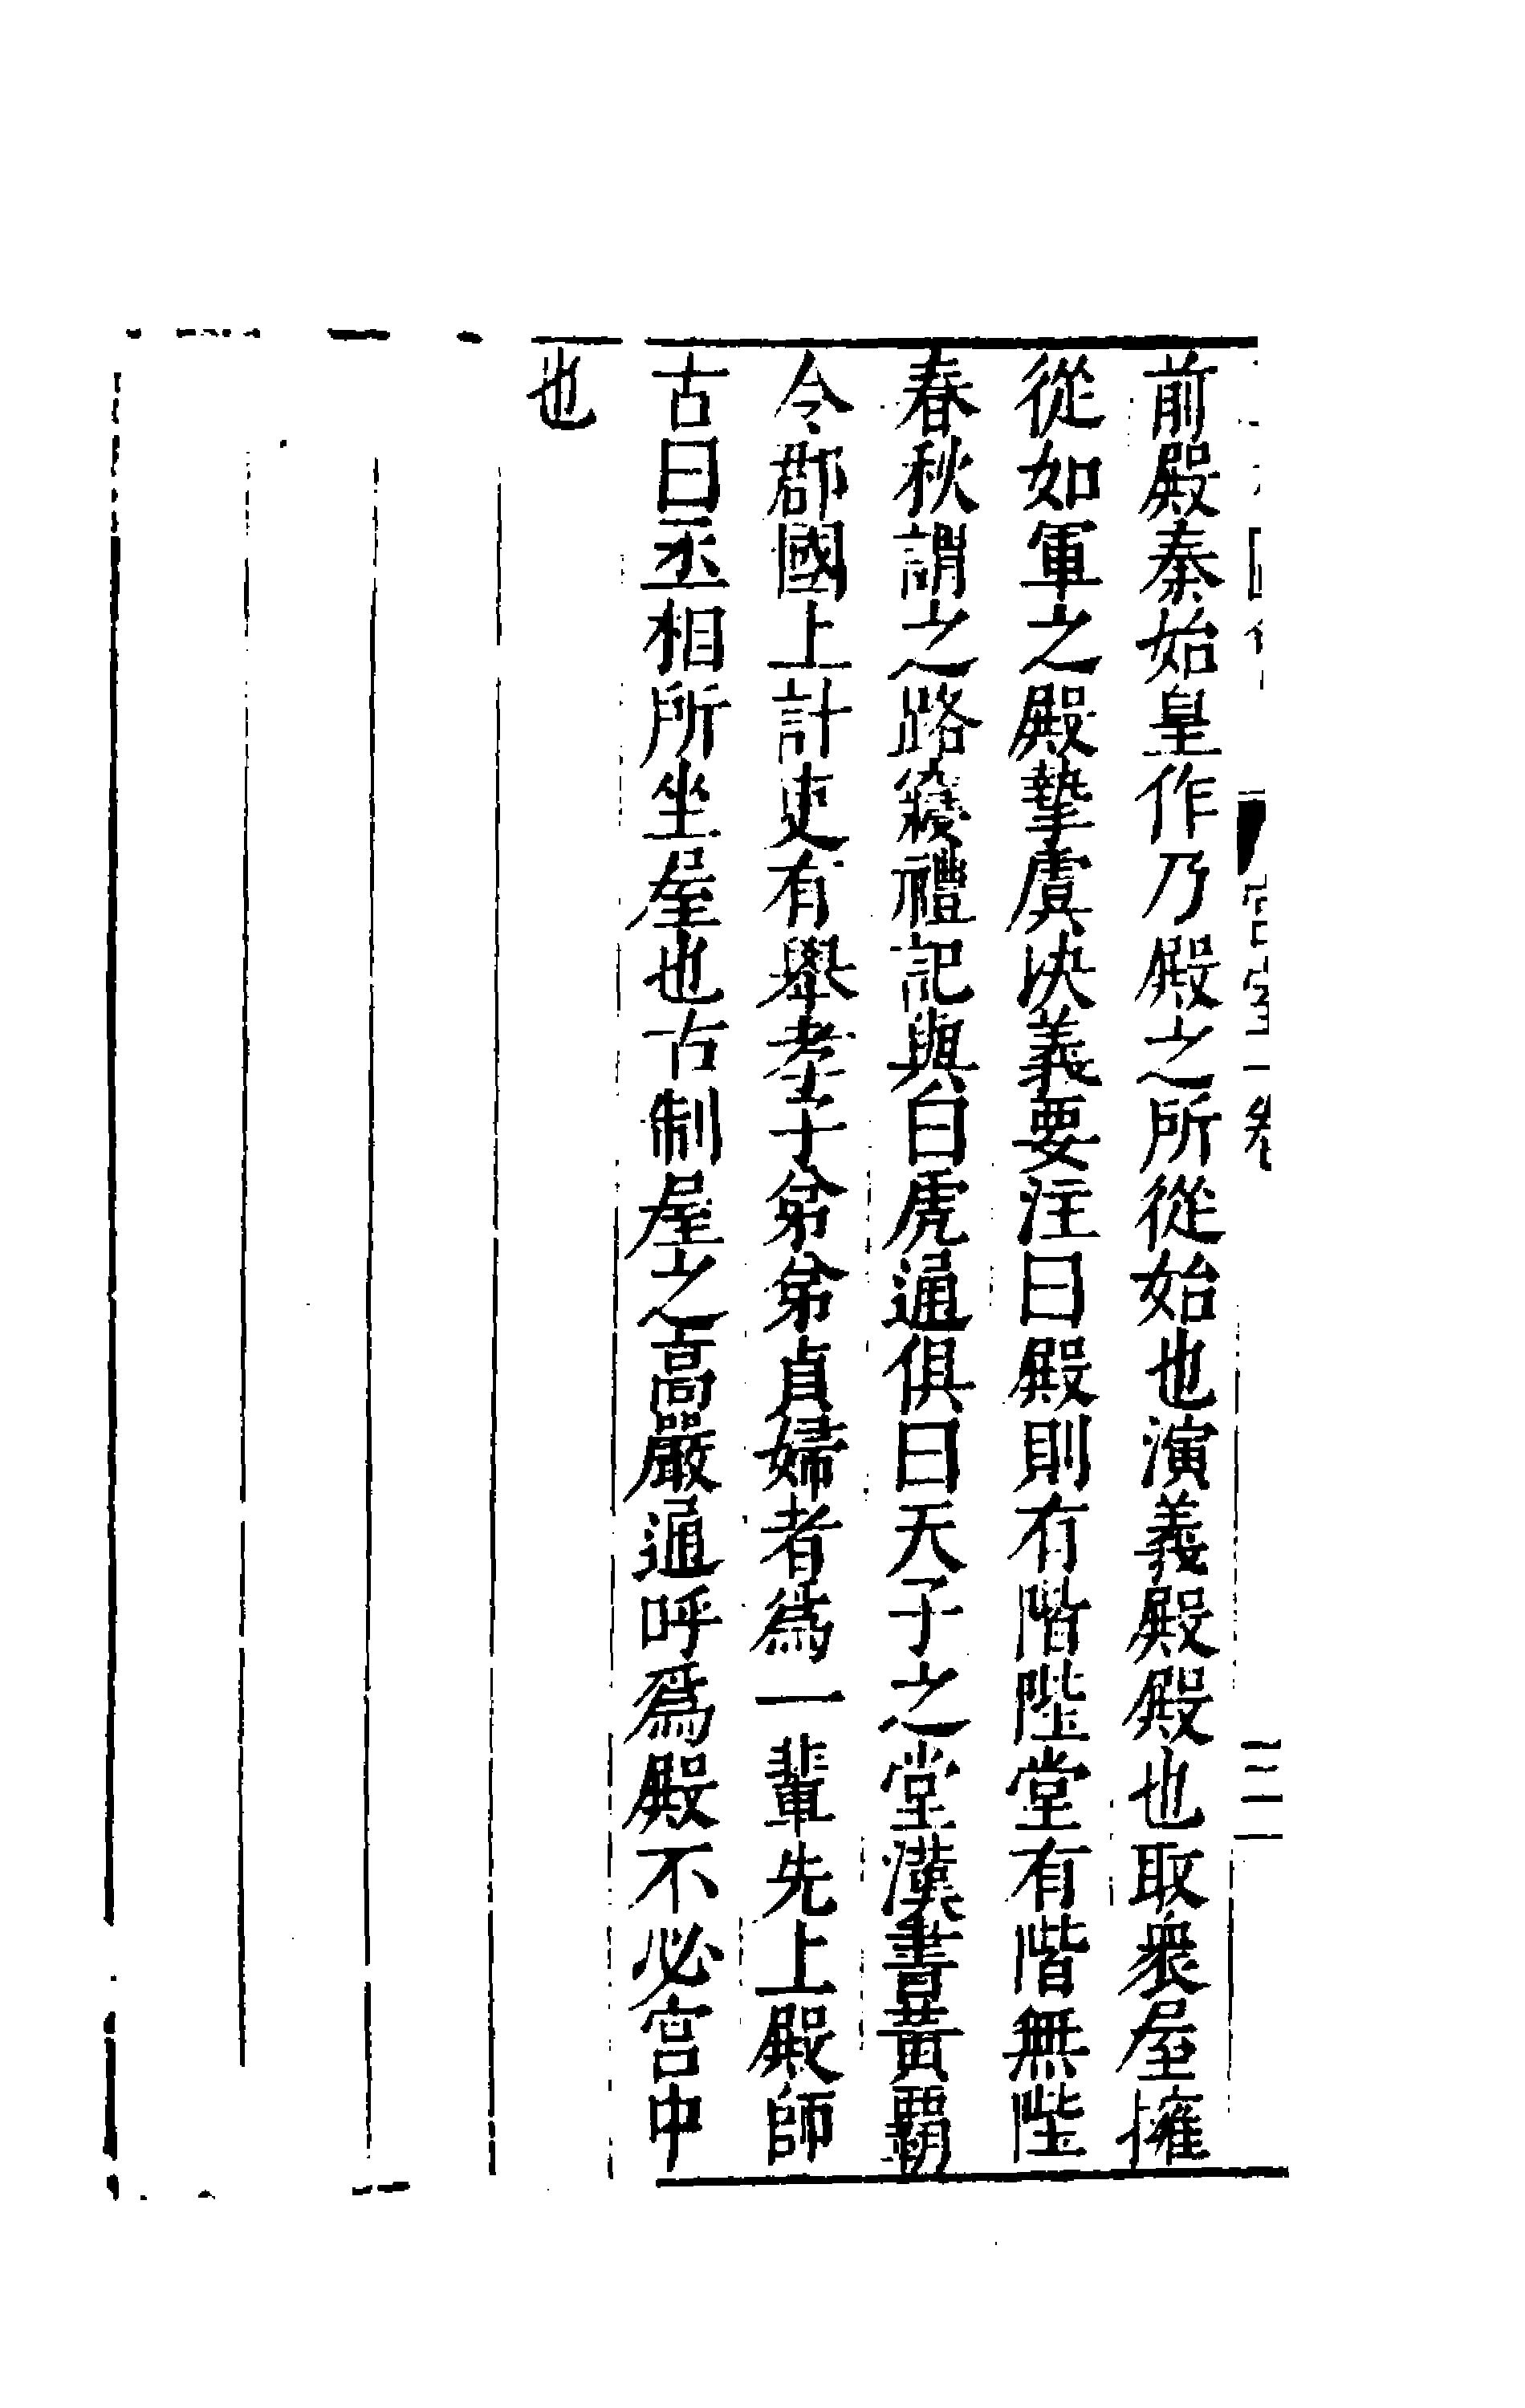 宮室一卷 三
前殿秦始皇作乃殿之所從始也演義殿殿也取衆屋擁
從如軍之殿摯虞決義要注曰殿則有階陛堂有階無陛
春秋謂之路寢禮記與白虎通俱曰天子之堂漢書黃霸
令郡國上計吏有舉孝子弟弟貞婦者爲一輩先上殿師
古曰丞相所坐屋也古制屋之高嚴通呼爲殿不必宮中
也